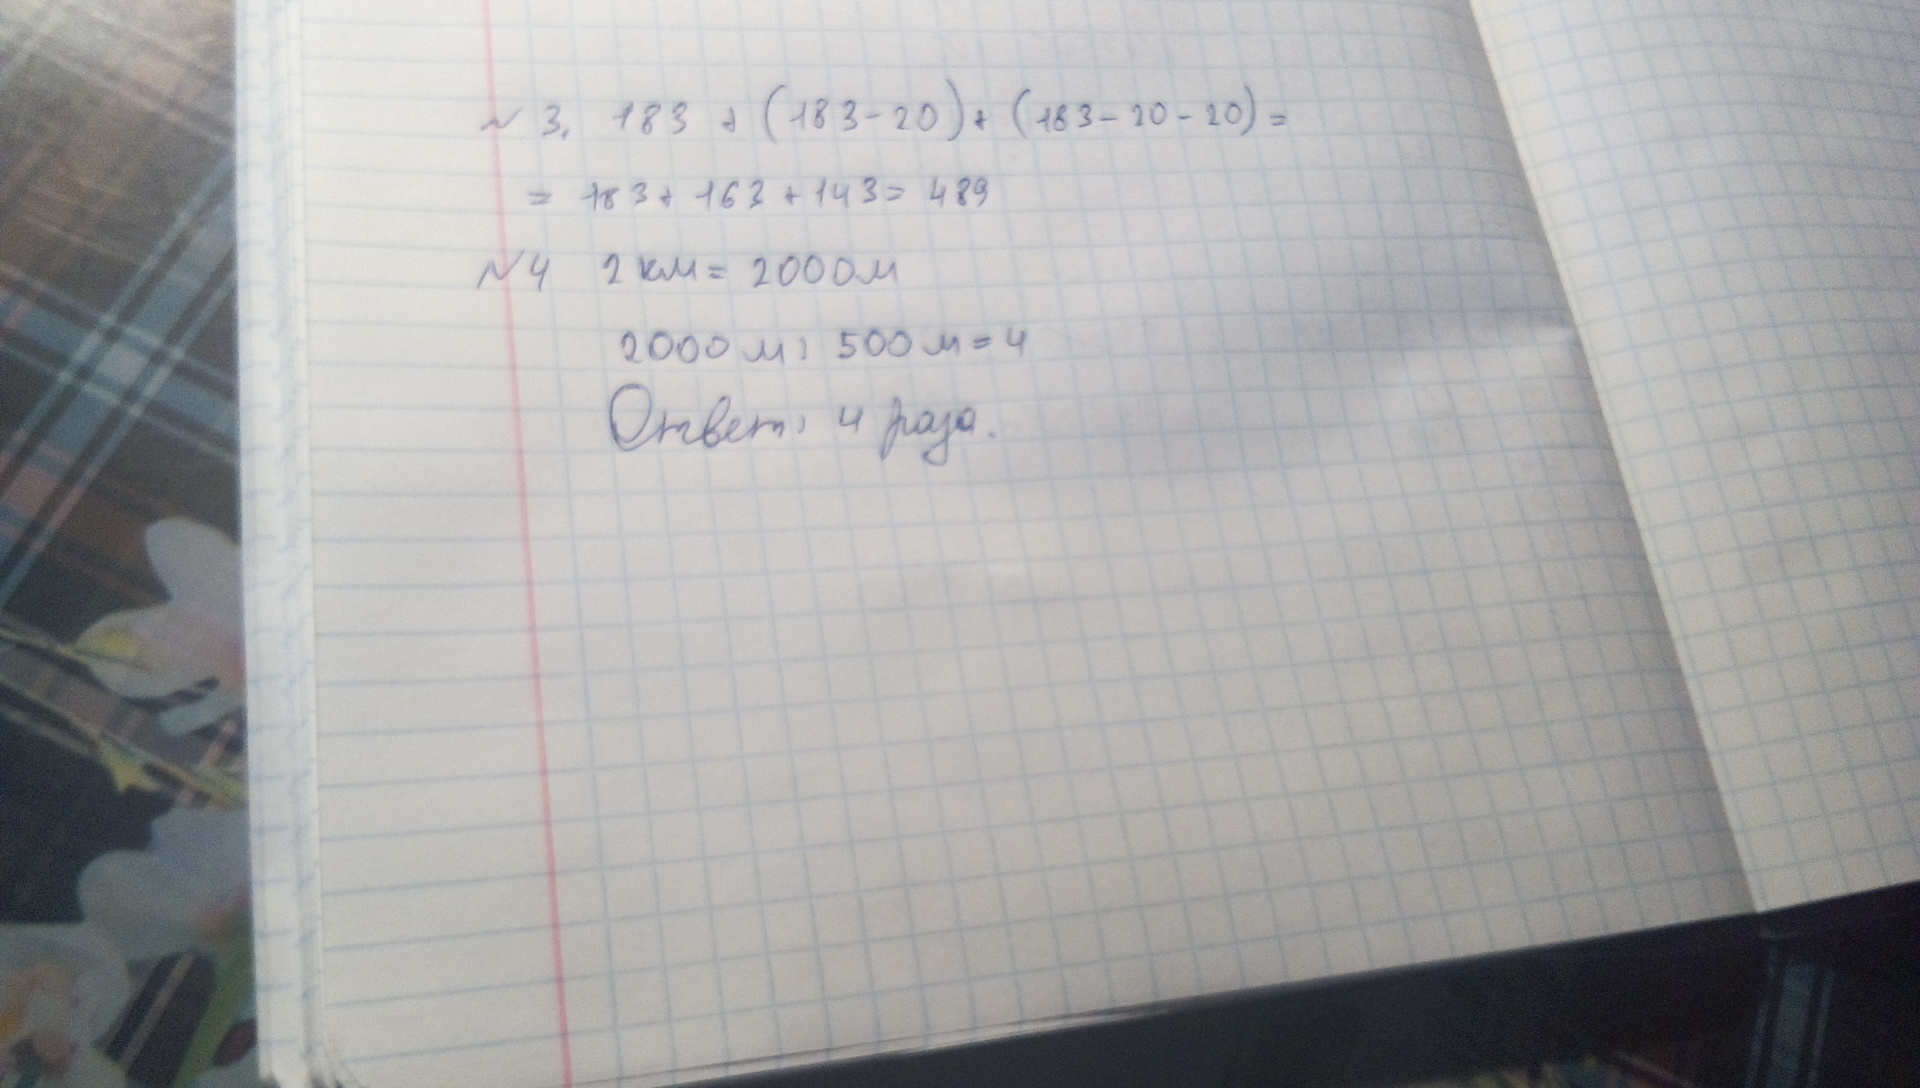 № 3. 183 + (183-20) + (183-20-20) =
= 183 + 163 + 143 = 489
№ 4 2 км = 2000 м
2000 м : 500 м = 4
Ответ: 4 раза.